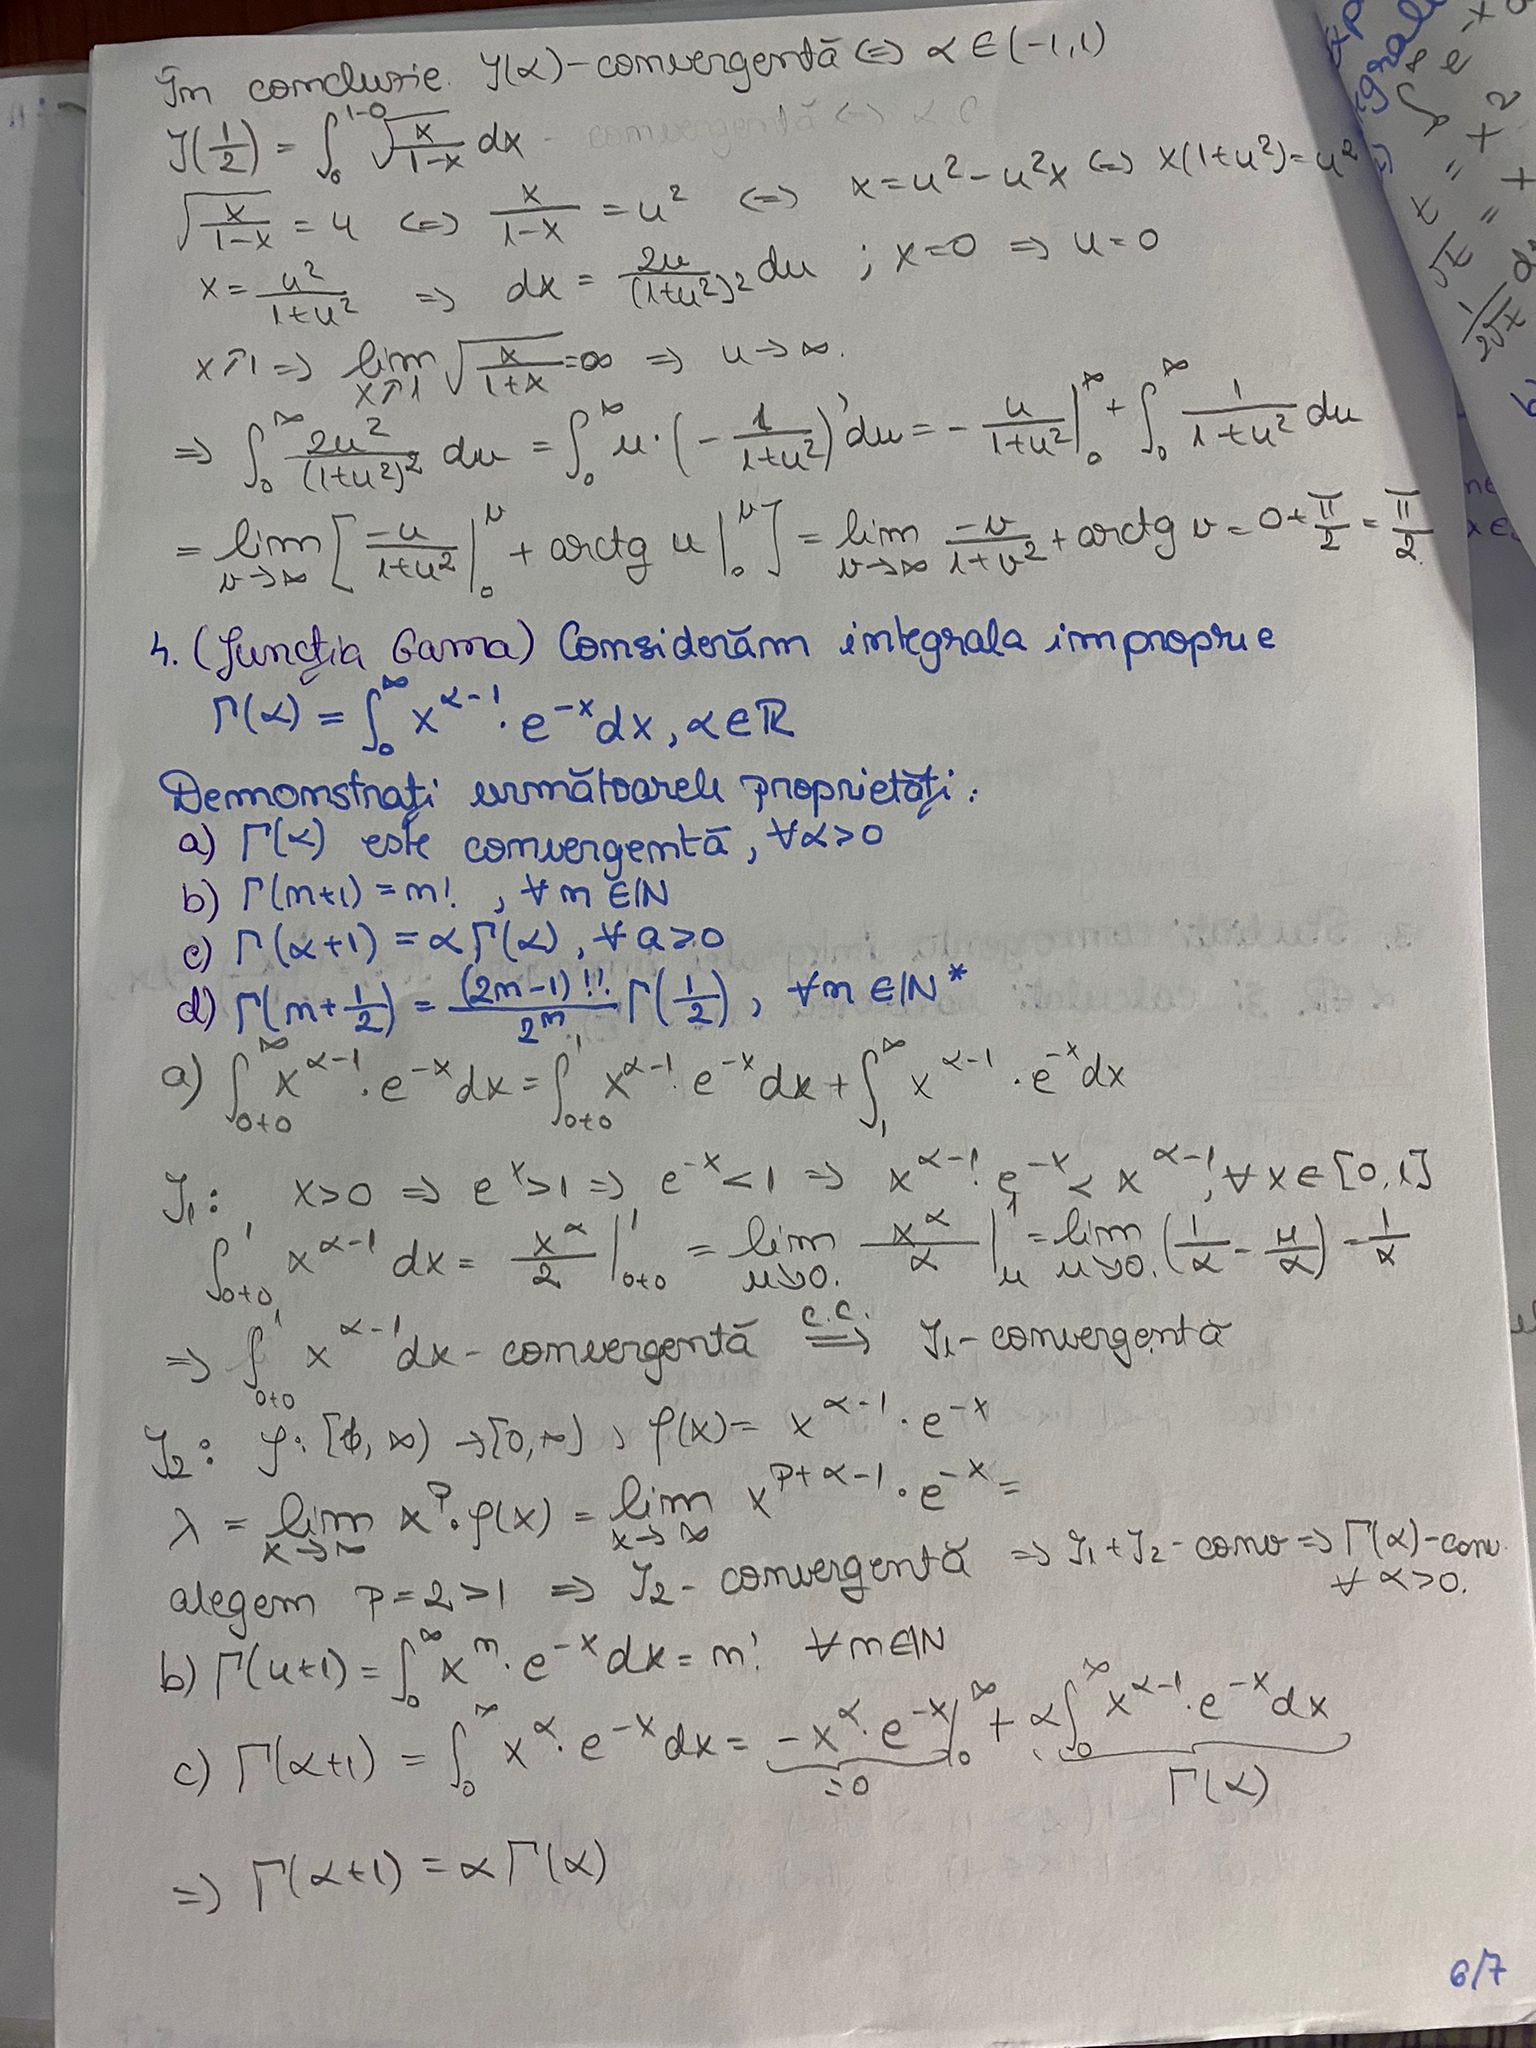 În concluzie J(α)-convergentă (=) α ∈ (-1,1)
J(1/2) = ∫₀^{1-0} √(x/(1-x)) dx
√(x/(1-x)) = u (=) x/(1-x) = u² (=) x = u² - u²x (=) x(1+u²) = u²
x = u²/(1+u²) => dx = 2u/(1+u²)² du ; x=0 => u=0
x↗1 => lim_{x↗1} √(x/(1+x)) = ∞ => u → ∞.
=> ∫₀^∞ 2u²/(1+u²)² du = ∫₀^∞ u·(-1/(1+u²))' du = - u/(1+u²) |₀^∞ + ∫₀^∞ 1/(1+u²) du
= lim_{v→∞} [-u/(1+u²) |₀^v + arctg u |₀^v] = lim_{v→∞} -v/(1+v²) + arctg v = 0 + π/2 = π/2
4. (funcția Gama) Considerăm integrala improprie
Γ(α) = ∫₀^∞ x^{α-1}·e^{-x} dx, α ∈ ℝ
Demonstrați următoarele proprietăți:
a) Γ(α) este convergentă, ∀α>0
b) Γ(n+1) = n!, ∀n ∈ ℕ
c) Γ(α+1) = αΓ(α), ∀a>0
d) Γ(n+1/2) = (2n-1)!!/2ⁿ Γ(1/2), ∀n ∈ ℕ*
a) ∫_{0+0}^∞ x^{α-1}·e^{-x} dx = ∫_{0+0}^1 x^{α-1}·e^{-x} dx + ∫₁^∞ x^{α-1}·e^{-x} dx
J₁: x>0 => e^x>1 => e^{-x}<1 => x^{α-1}·e^{-x} < x^{α-1}, ∀x ∈ [0,1]
∫_{0+0}^1 x^{α-1} dx = x^α/2 |_{0+0}^1 = lim_{u↘0} x^α/α |_u^1 = lim_{u↘0} (1/α - u/α) = 1/α
=> ∫_{0+0}^1 x^{α-1} dx - convergentă =C.C.=> J₁-convergentă
J₂: f: [1,∞) → [0,∞), f(x) = x^{α-1}·e^{-x}
λ = lim_{x→∞} x^p·f(x) = lim_{x→∞} x^{p+α-1}·e^{-x} =
alegem p=2>1 => J₂-convergentă => J₁+J₂-conv => Γ(α)-conv.
∀α>0.
b) Γ(u+1) = ∫₀^∞ xⁿ·e^{-x} dx = n! ∀n∈ℕ
c) Γ(α+1) = ∫₀^∞ x^α·e^{-x} dx = -x^α·e^{-x} |₀^∞ + α∫₀^∞ x^{α-1}·e^{-x} dx
=0 Γ(α)
=> Γ(α+1) = αΓ(α)
6/7